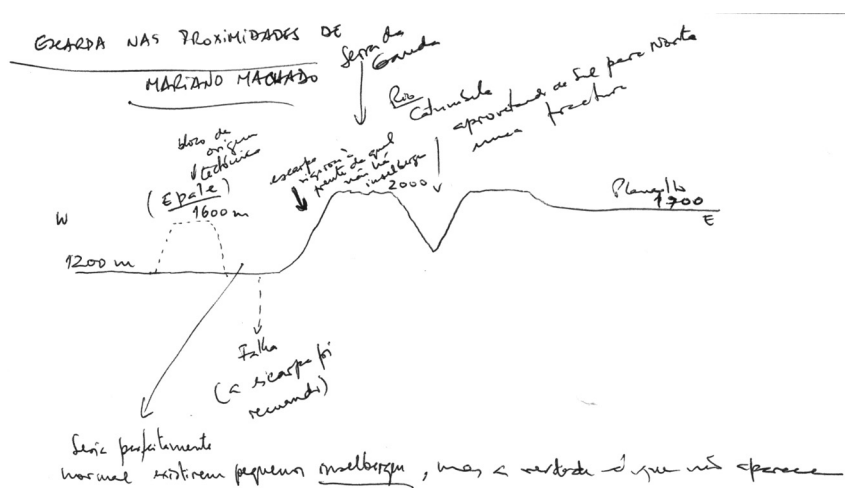 ESCARPA NAS PROXIMIDADES DE
MARIANO MACHADO
Serra da
Ganda
Rio
Catumbela
aproveitando de Sul para Norte
uma fractura
bloco de
origem
tectónica
(Epale)
1600 m
escarpa
vigorosa à
frente da qual
não há
inselbergs
2000
Planalto
1700
W
E
1200 m
Falha
(a escarpa foi
recuando)
Seria perfeitamente
normal existirem pequenos inselbergs, mas a verdade é que não aparecem